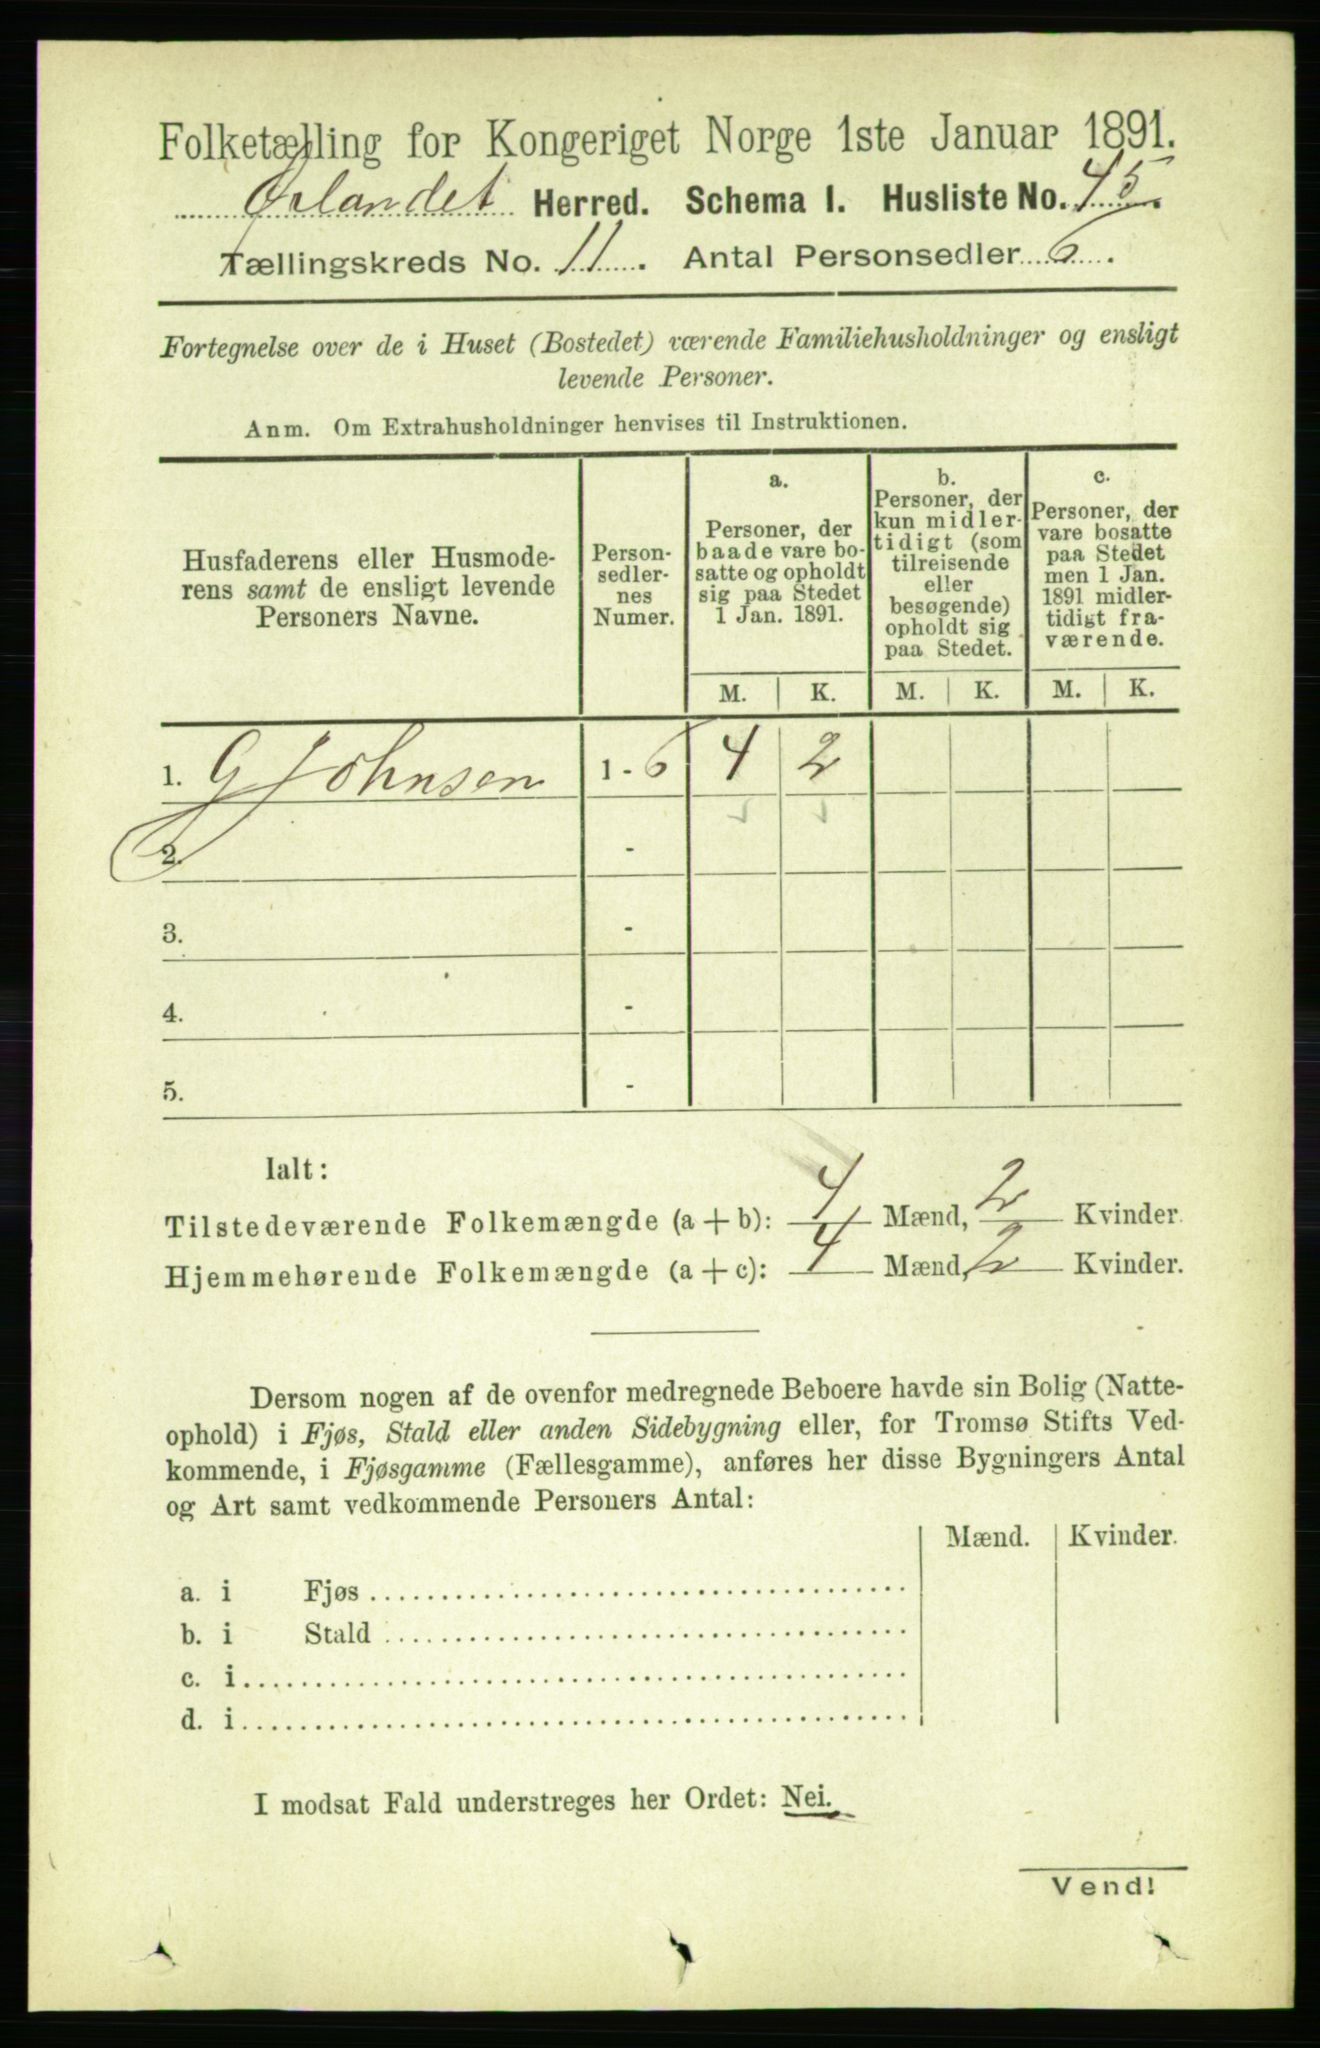 Folketælling for Kongeriget Norge 1ste Januar 1891.
Ørlandet Herred. Schema I. Husliste No. 45.
Tællingskreds No. 11. Antal Personsedler 6.
Fortegnelse over de i Huset (Bostedet) værende Familiehusholdninger og ensligt
levende Personer.
Anm. Om Extrahusholdninger henvises til Instruktionen.
Husfaderens eller Husmode-
rens samt de ensligt levende
Personers Navne.
Person-
sedler-
nes
Numer.
a.
Personer, der
baade vare bo-
satte og opholdt
sig paa Stedet
1 Jan. 1891.
b.
Personer, der
kun midler-
tidigt (som
tilreisende
eller
besøgende)
opholdt sig
paa Stedet.
c.
Personer, der
vare bosatte
paa Stedet
men 1 Jan.
1891 midler-
tidigt fra-
værende.
M. K. M. K. M. K.
1. G Johnsen 1 - 6 4 2
2. -
3. -
4. -
5. -
Ialt:
Tilstedeværende Folkemængde (a + b): 4 Mænd, 2 Kvinder.
Hjemmehørende Folkemængde (a + c): 4 Mænd, 2 Kvinder.
Dersom nogen af de ovenfor medregnede Beboere havde sin Bolig (Natte-
ophold) i Fjøs, Stald eller anden Sidebygning eller, for Tromsø Stifts Ved-
kommende, i Fjøsgamme (Fællesgamme), anføres her disse Bygningers Antal
og Art samt vedkommende Personers Antal:
Mænd. Kvinder.
a. i Fjøs
b. i Stald
c. i
d. i
I modsat Fald understreges her Ordet: Nei.
Vend!